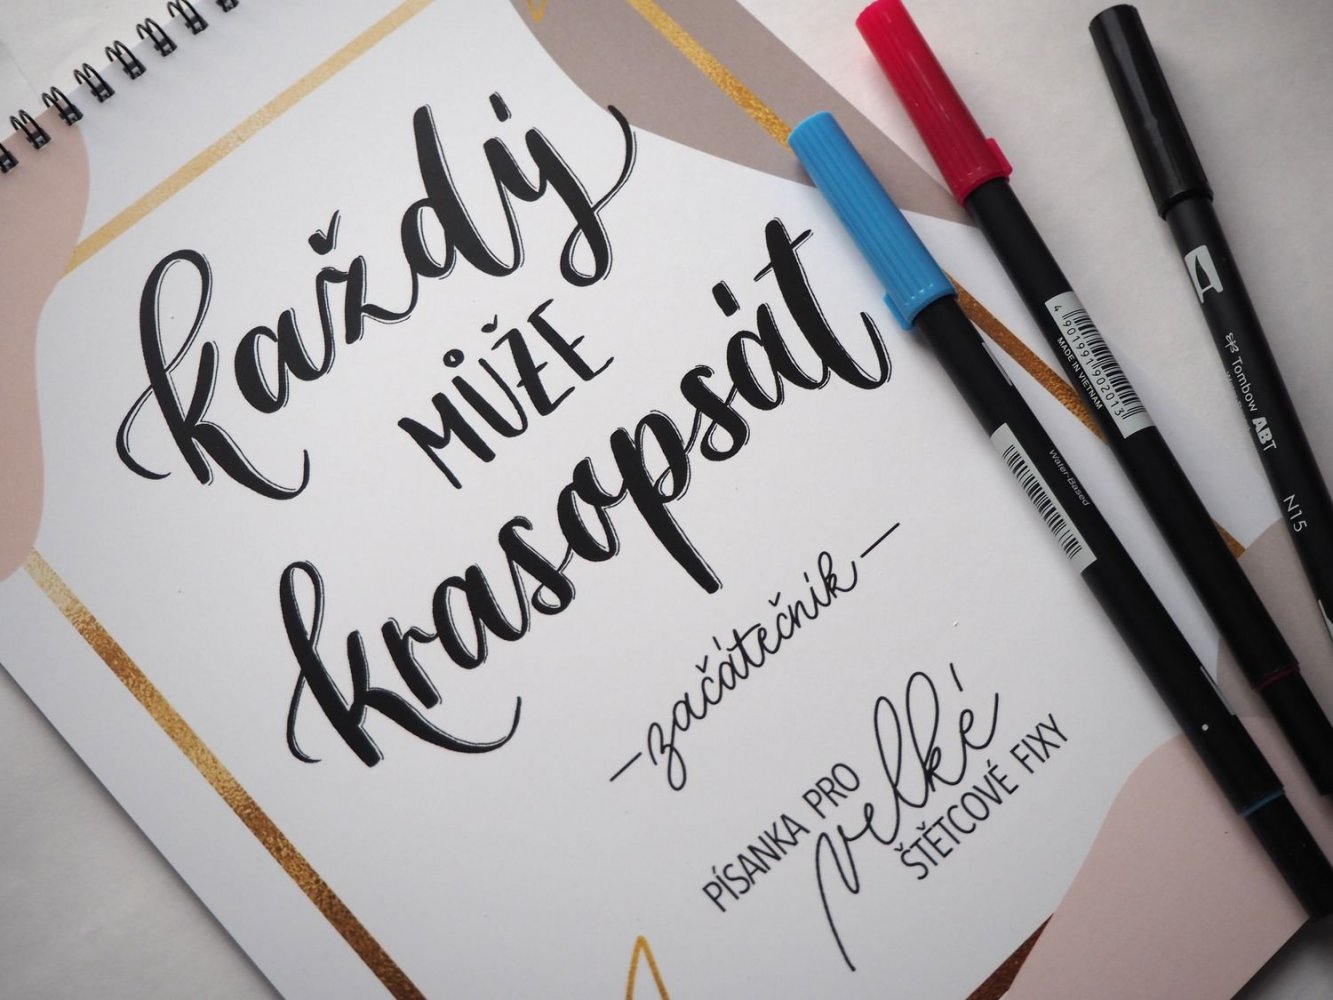 každý
MŮŽE
krasopsát
— začátečník —
PÍSANKA PRO
velké
ŠTĚTCOVÉ FIXY
4 901991 902013
MADE IN VIETNAM
Water-Based
Tombow ABT
N15